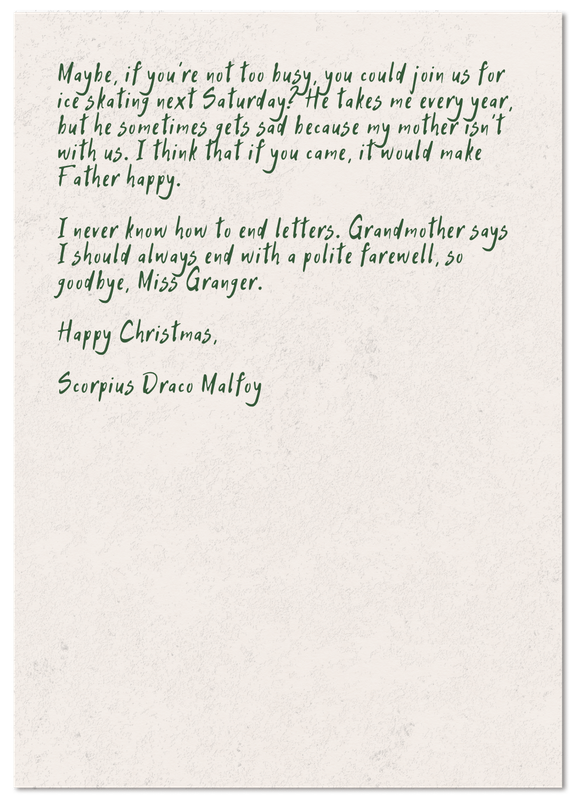 Maybe, if you're not too busy, you could join us for
ice skating next Saturday? He takes me every year,
but he sometimes gets sad because my mother isn't
with us. I think that if you came, it would make
Father happy.
I never know how to end letters. Grandmother says
I should always end with a polite farewell, so
goodbye, Miss Granger.
Happy Christmas,
Scorpius Draco Malfoy